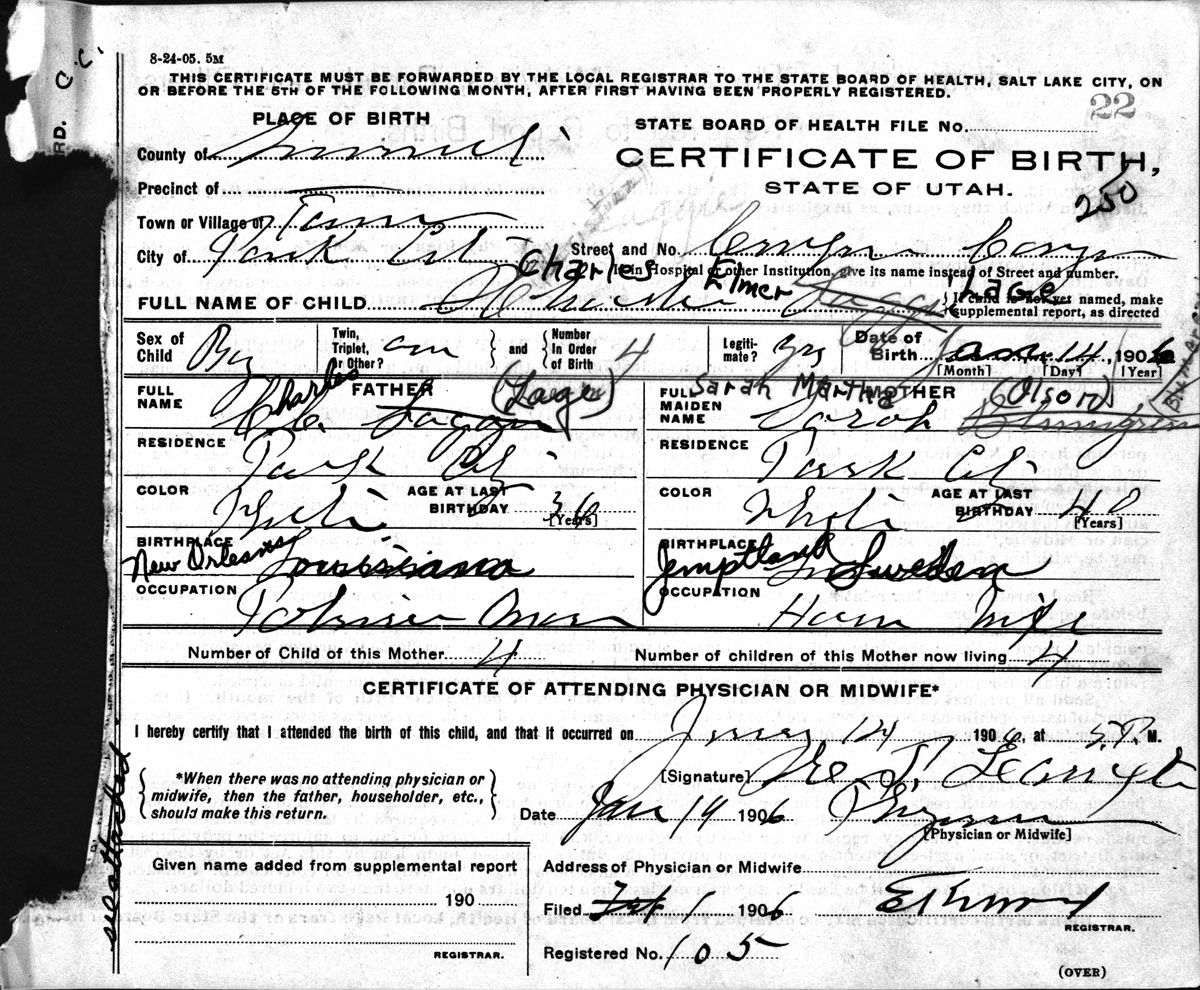 C.C.
RD.
8-24-05. 5M
THIS CERTIFICATE MUST BE FORWARDED BY THE LOCAL REGISTRAR TO THE STATE BOARD OF HEALTH, SALT LAKE CITY, ON
OR BEFORE THE 5TH OF THE FOLLOWING MONTH, AFTER FIRST HAVING BEEN PROPERLY REGISTERED.
PLACE OF BIRTH
STATE BOARD OF HEALTH FILE No. 22
County of Summit
CERTIFICATE OF BIRTH,
Precinct of
STATE OF UTAH.
250
Town or Village of
City of Park City
Street and No. Empire Canyon
If in Hospital or other Institution, give its name instead of Street and number.
Charles Elmer Lage
FULL NAME OF CHILD
If child is not yet named, make
supplemental report, as directed
Sex of Child Boy
Twin, Triplet, or Other? and Number In Order of Birth 4
Legitimate? yes
Date of Birth Jan 14, 1906
[Month] [Day] [Year]
FULL NAME FATHER Charles (Lage)
FULL MAIDEN NAME MOTHER Sarah Martha (Olson)
Sarah
RESIDENCE Park City
RESIDENCE Park City
COLOR White AGE AT LAST BIRTHDAY 36 [Years]
COLOR White AGE AT LAST BIRTHDAY 40 [Years]
BIRTHPLACE New Orleans Louisiana
BIRTHPLACE Jemptland Sweden
OCCUPATION
OCCUPATION House Wife
Number of Child of this Mother 4
Number of children of this Mother now living 4
CERTIFICATE OF ATTENDING PHYSICIAN OR MIDWIFE*
I hereby certify that I attended the birth of this child, and that it occurred on 14 1906, at 5. P. M.
*When there was no attending physician or
midwife, then the father, householder, etc.,
should make this return.
[Signature]
Date Jan 14 1906
[Physician or Midwife]
Given name added from supplemental report
190
REGISTRAR.
Address of Physician or Midwife
Filed Feb 1 1906
REGISTRAR.
Registered No. 105
(OVER)